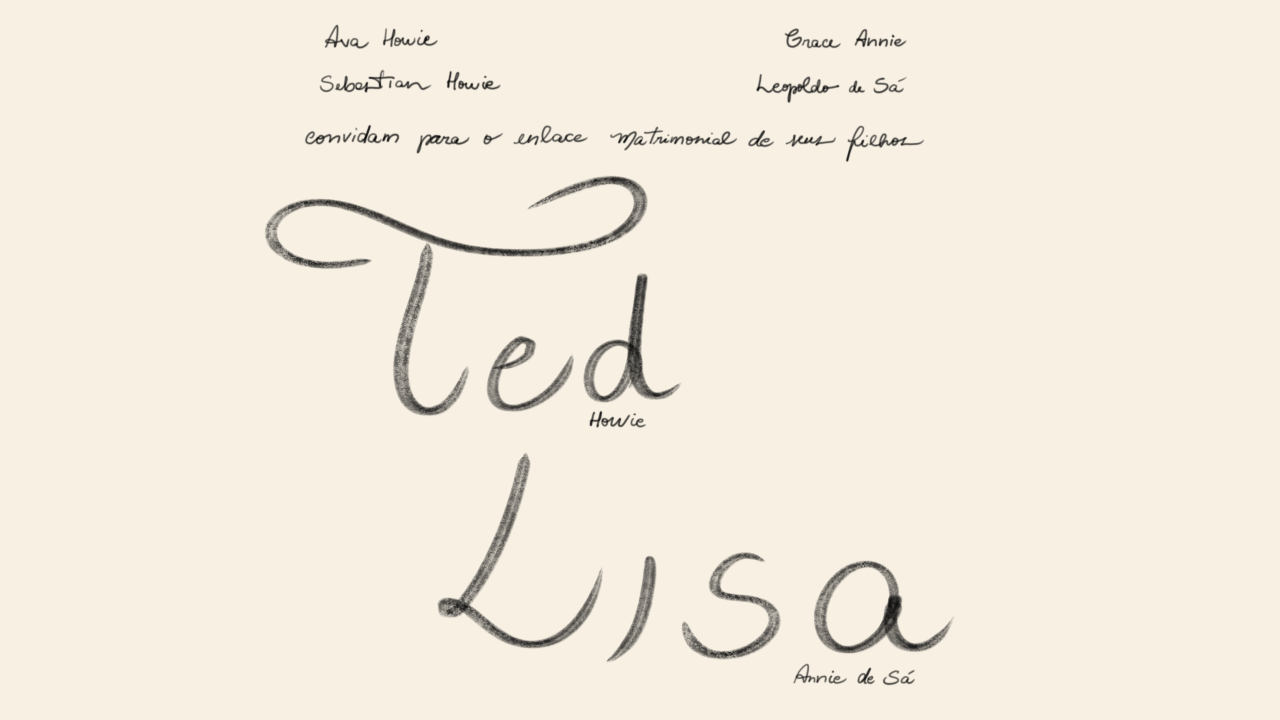 Ava Howie
Grace Annie
Sebastian Howie
Leopoldo de Sá
convidam para o enlace matrimonial de seus filhos
Ted
Howie
Lisa
Annie de Sá